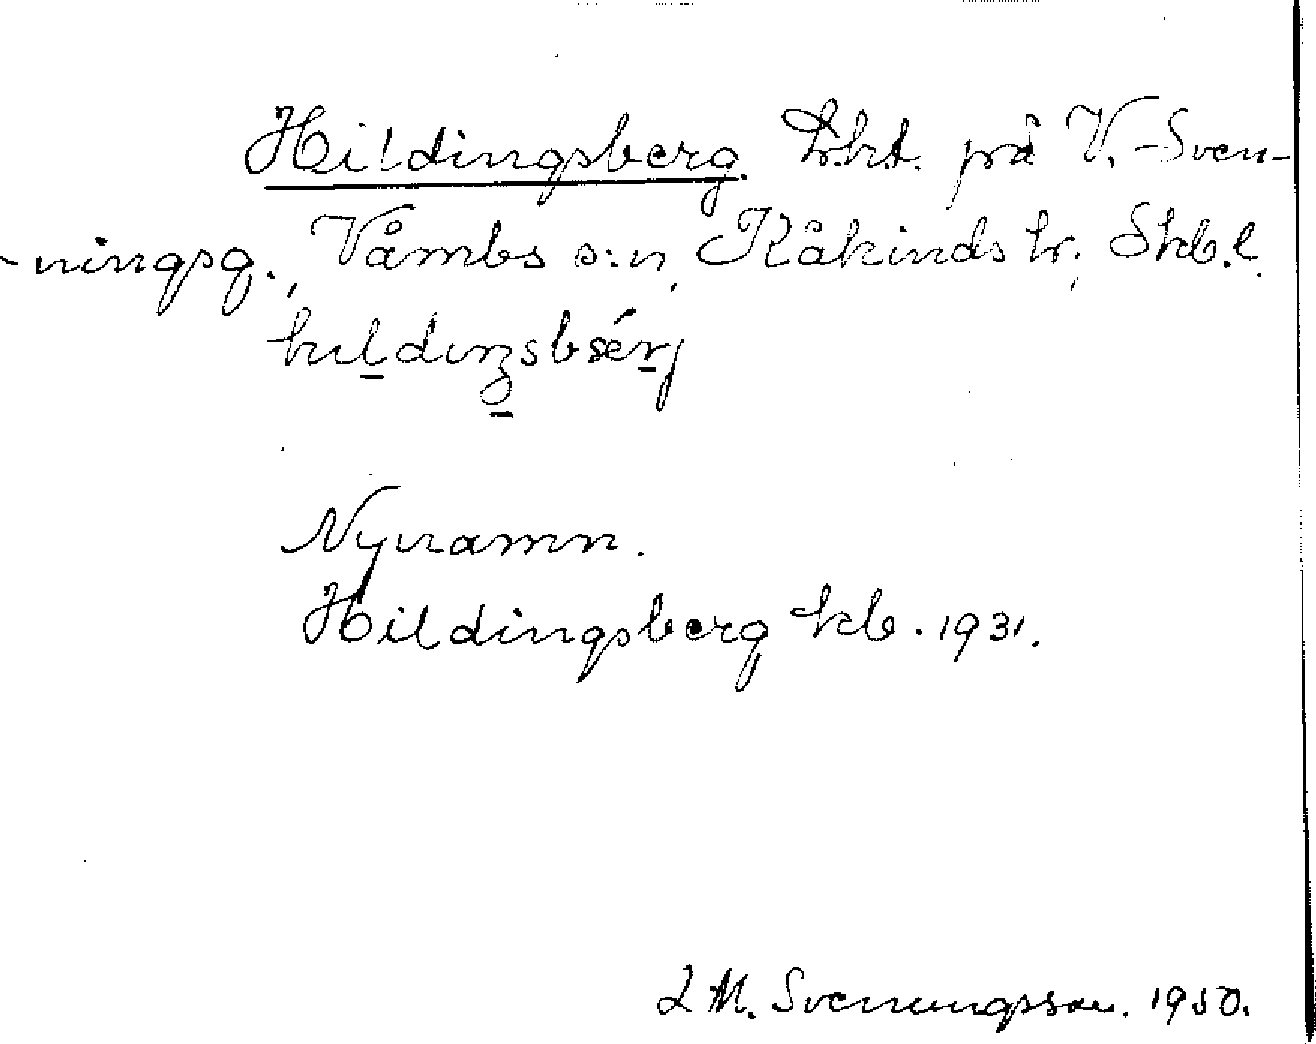 Hildingsberg. Trkt. på V.-Sven-
ningsg., Våmbs s:n, Kåkinds hr., Skb.l.
Nynamn.
Hildingsberg kb. 1931.
L M. Svenungsson. 1950.